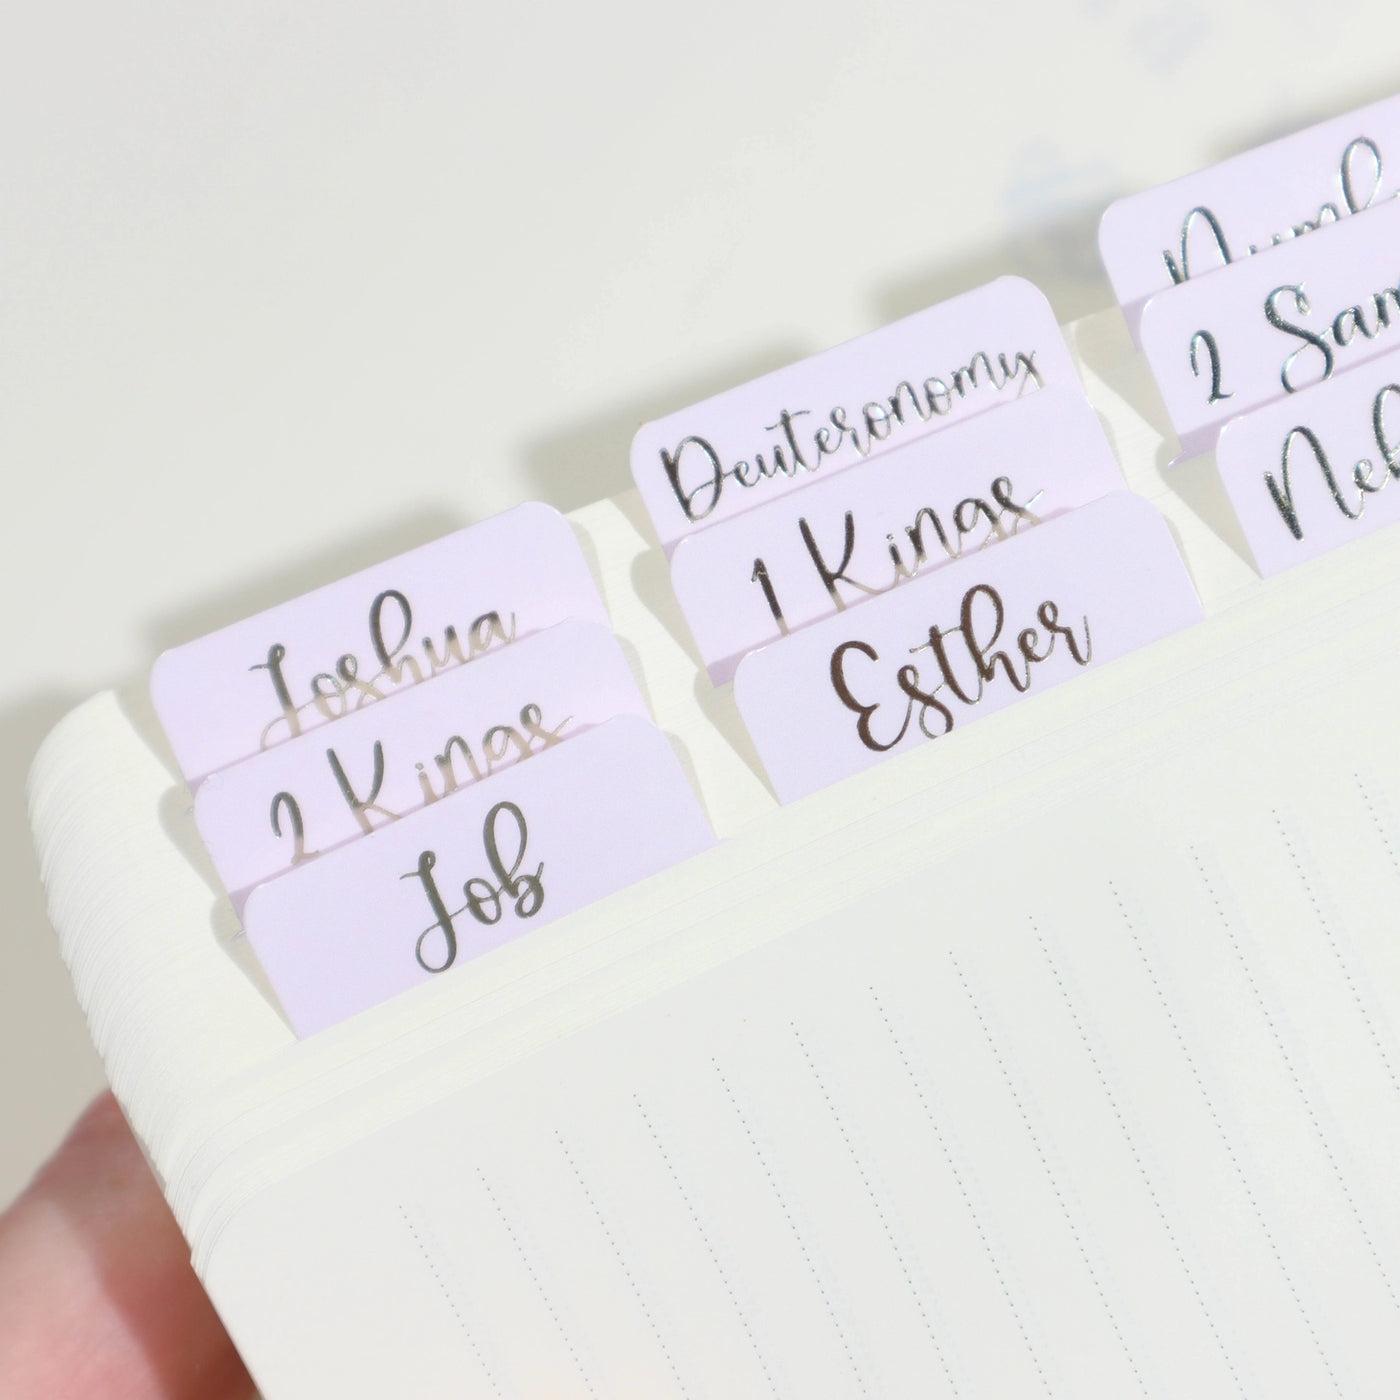 Joshua
2 Kings
Job
Deuteronomy
1 Kings
Esther
2 Sam